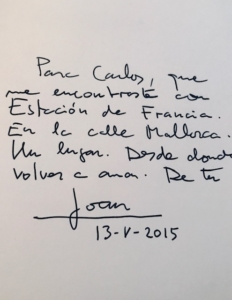 Para Carlos, que
me encontraste con
Estación de Francia.
En la calle Mallorca.
Un lugar. Desde donde
volver a amar. De tu
Joan
13-V-2015